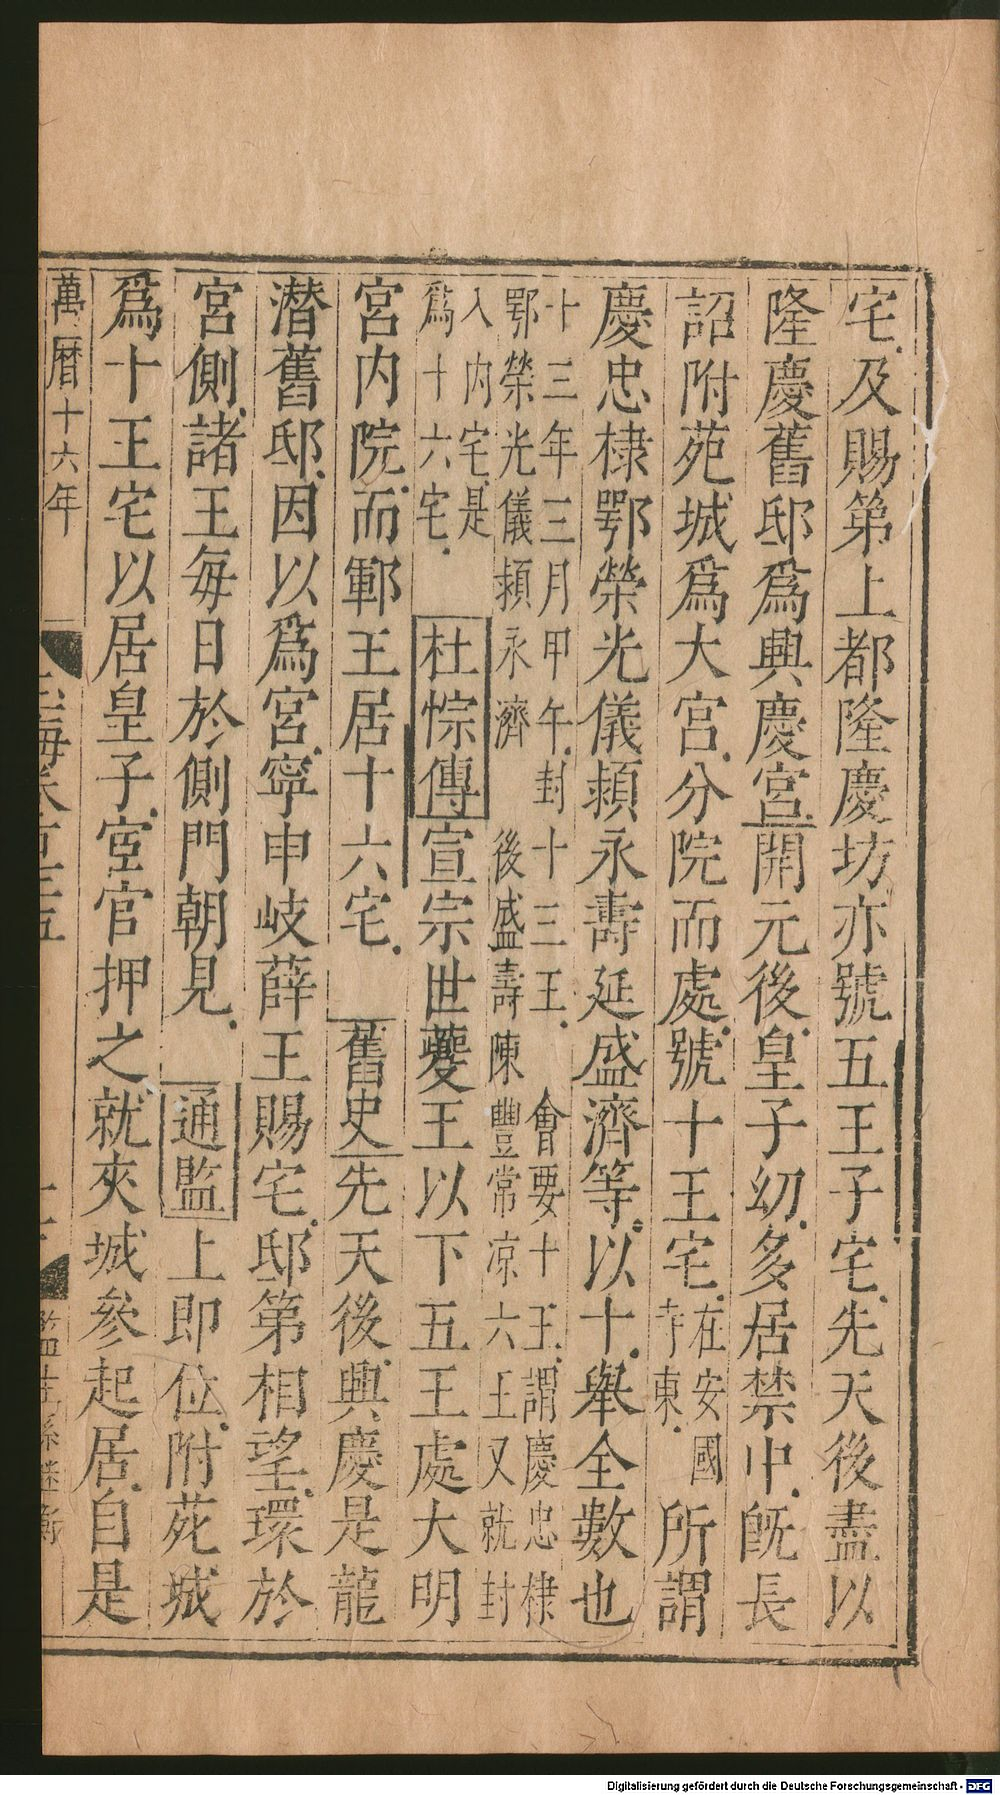 宅及賜第上都隆慶坊亦號五王子宅先天後盡以
隆慶舊邸爲興慶宮開元後皇子幼多居禁中旣長
詔附苑城爲大宮分院而處號十王宅
在安國
寺東
所謂
慶忠棣鄂榮光儀潁永壽延盛濟等以十舉全數也
十三年三月甲午封十三王會要十王謂慶忠棣
鄂榮光儀潁永濟後盛壽陳豐常凉六王又就封
入内宅是
爲十六宅
杜悰傳宣宗世夔王以下五王處大明
宮内院而鄆王居十六宅舊史先天後興慶是龍
潛舊邸因以爲宮寧申岐薛王賜宅邸第相望環於
宮側諸王每日於側門朝見通監上即位附苑城
爲十王宅以居皇子宦官押之就夾城參起居自是
萬曆十六年
玉海卷百三五
監生孫
Digitalisierung gefördert durch die Deutsche Forschungsgemeinschaft - DFG